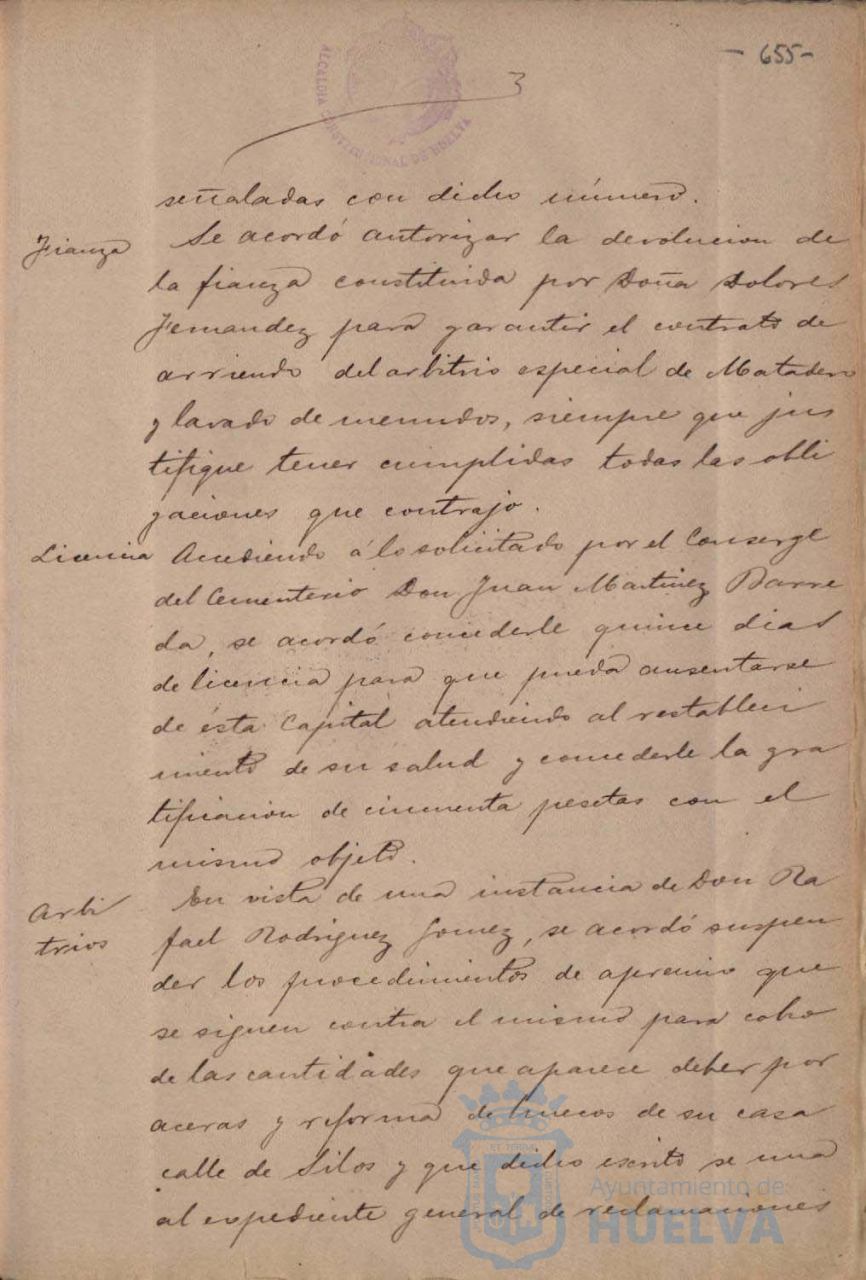 - 655-
ALCALDIA CONSTITUCIONAL DE HUELVA
3
señaladas con dicho número.
Fianza
Se acordó autorizar la devolucion de
la fianza constituida por Doña Dolores
Fernandez para garantir el contrato de
arriendo del arbitrio especial de Matadero
y lavado de menudos, siempre que jus
tifique tener cumplidas todas las obli
gaciones que contrajo.
Licencia
Accediendo á lo solicitado por el Conserge
del Cementerio Don Juan Martinez Barre
da, se acordó concederle quince dias
de licencia para que pueda ausentarse
de ésta Capital atendiendo al restableci
miento de su salud y concederle la gra
tificacion de cincuenta pesetas con el
mismo objeto.
Arbi
trios
En vista de una instancia de Don Ra
fael Rodriguez Gomez, se acordó suspen
der los procedimientos de apremio que
se siguen contra el mismo para cobro
de las cantidades que aparece deber por
aceras y reforma de huecos de su casa
calle de Silos y que dicho escrito se una
al expediente general de reclamaciones
Ayuntamiento de
HUELVA